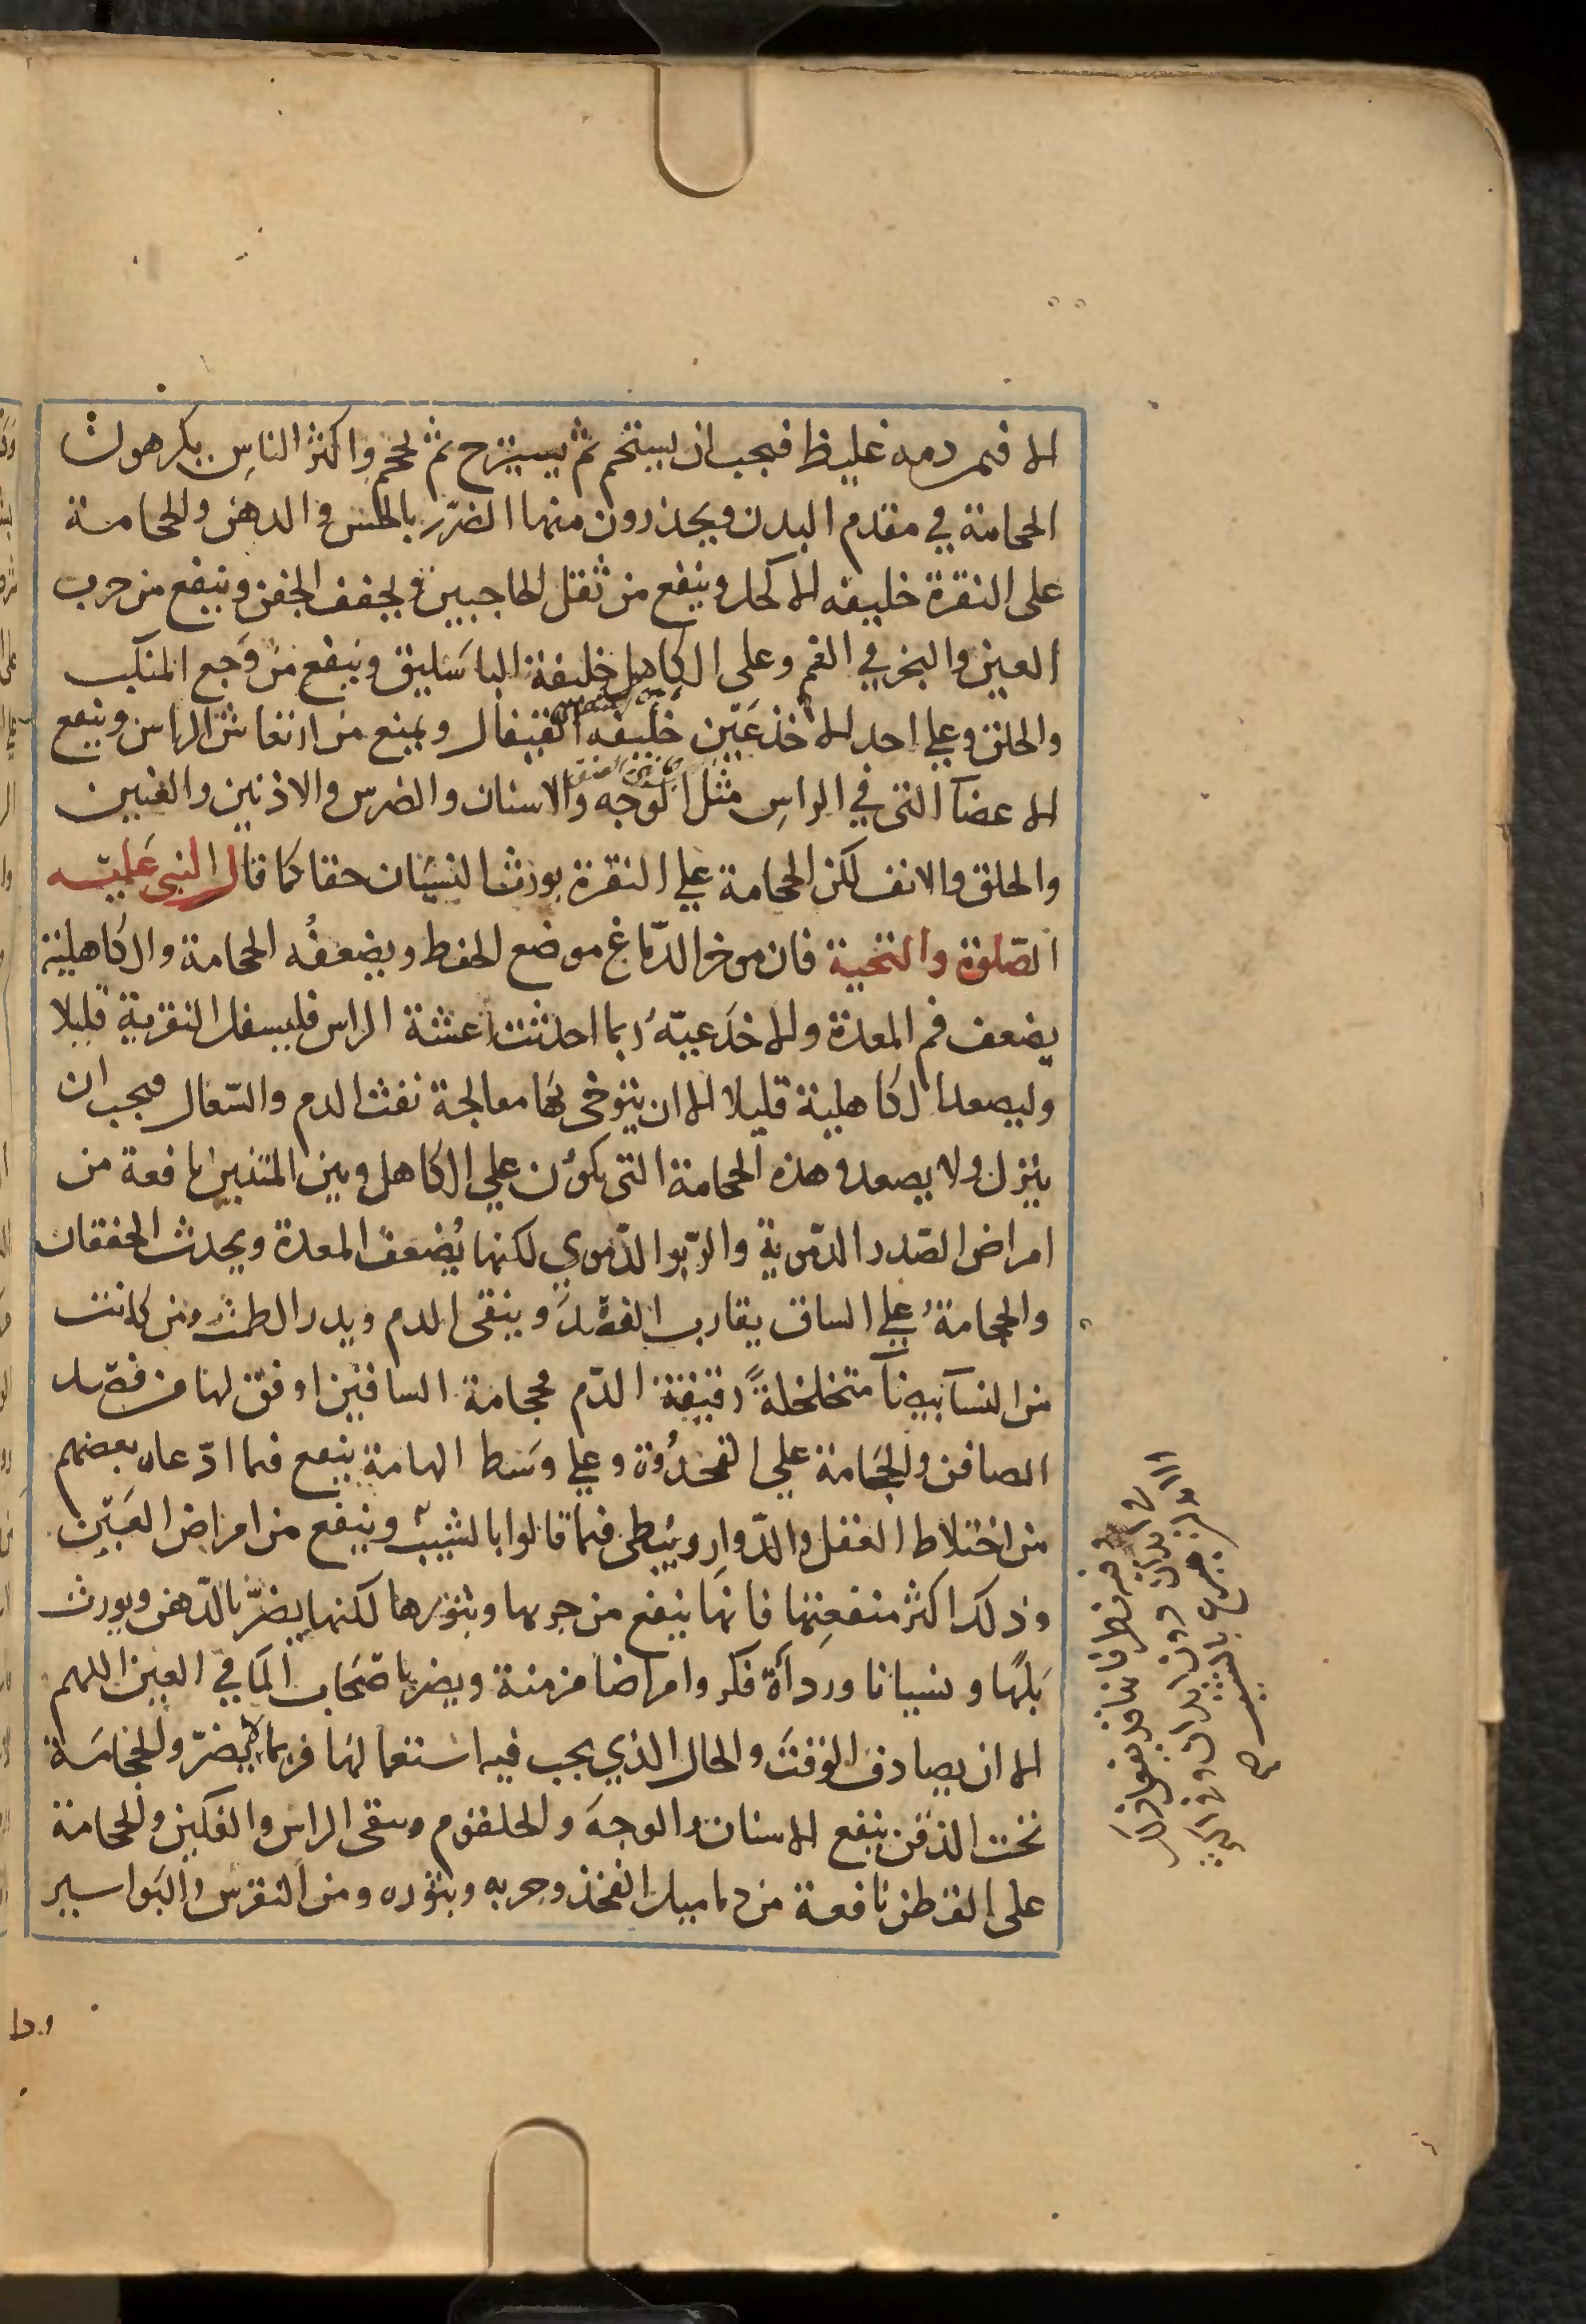 الا فيمن دمه غليظ فيجب ان يستحم ثم يستريح ثم يحجم واكثر الناس يكرهون
الحجامة في مقدم البدن ويحذرون منها الضرر بالحس والذهن والحجامة
على النقرة خليفه الاكحل وينفع من ثقل الحاجبين ويجفف الجفن وينفع من جرب
العين والبخر في الفم وعلى الكاهل خليفة الباسليق وينفع من وجع المنكب
والحلق وعلى احد الاخذعين خليفه القيفال ويمنع من ارتعاش الراس وينفع
الاعضآ التى في الراس مثل الوجه والاسنان والضرس والاذنين والعينين
والحلق والانف لكن الحجامة على النقرة يورث النسيان حقا كما قال النبى عليه
الصلوة والتحية فان موخر الدماغ موضع الحفظ ويضعفه الحجامة والكاهلية
يضعف فم المعدة والاخدعيّة ربما احدثت رعشة الراس فليسفل النقرية قليلا
وليصعد الكاهلية قليلا الا ان يتوخى بها معالجة نفث الدم والسّعال فيجب ان
ينزل ولا يصعد وهذه الحجامة التى يكون على الكاهل وبين المتنين نافعة من
امراض الصّدر الدّموية والرّبو الدّموي لكنها يُضعف المعدة ويحدث الخفقان
والحجامةُ على الساق يقارب الفصد وينقى الدم ويدر الطمث ومن كانت
من النسآ بيضآ متخلخلةً رقيقة الدّم فحجامة الساقين اوفق لها من فصد
الصافن والحجامة على القمحدُوة وعلى وسَط الهامة ينفع فيما ادّعاه بعضهم
من اختلاط العقل والدّوار ويبطى فيما قالوا بالشيب وينفع من امراض العين
وذلك اكثر منفعتها فانها ينفع من جربها وبثورها لكنها يضرّ بالذّهن ويورث
بَلَهًا ونسيانا وردآة فكر وامراضا مزمنة ويضر باصحاب المآ في العين اللهم
الا ان يصادف الوقت والحال الذي يجب فيه استعمالها فربما لم يضرّ والحجامة
تحت الذقن ينفع الاسنان والوجه والحلقوم وينقى الراس والفكين والحجامة
على القطن نافعة من دماميل الفخذ وجربه وبثوره ومن النقرس والبواسير
وفيه نظر فانها قد يفعل ذلك
في ابدان دون ابدان وفي اكثر
الابدان يسرع بالشيب صح